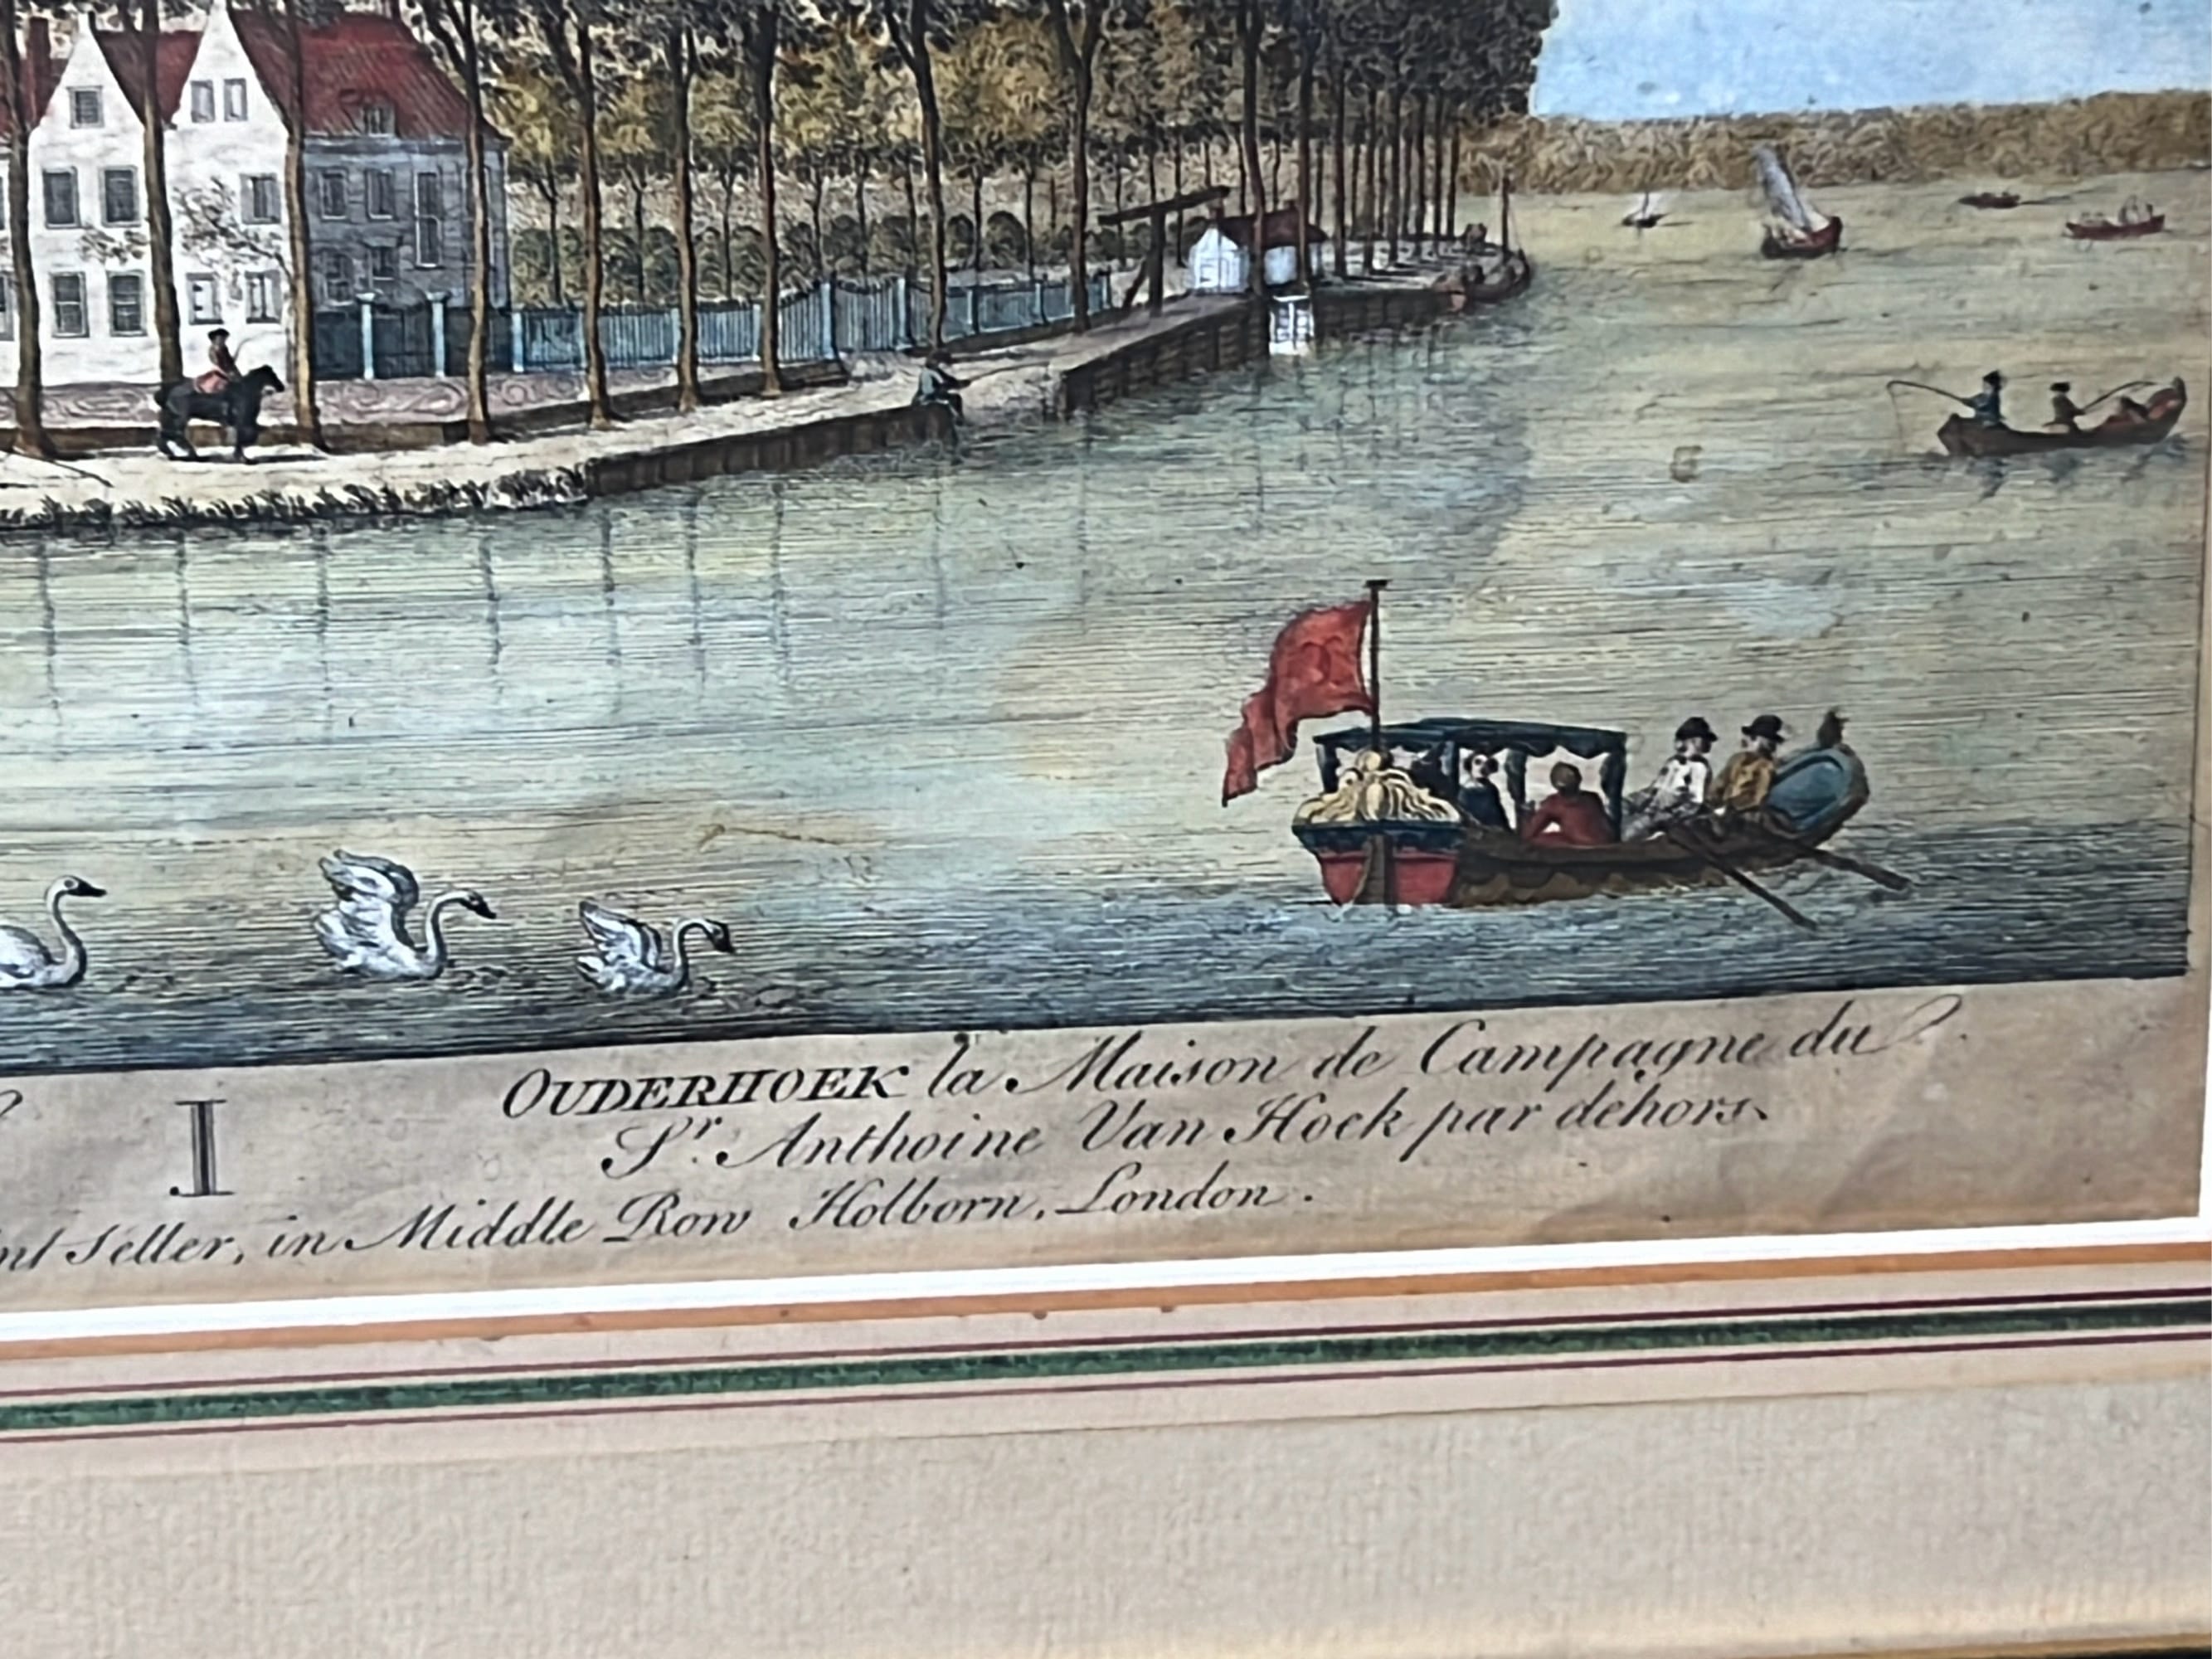 I
OUDERHOEK la Maison de Campagne du
Sr. Anthoine Van Hoek par dehors.
Seller, in Middle Row Holborn, London.